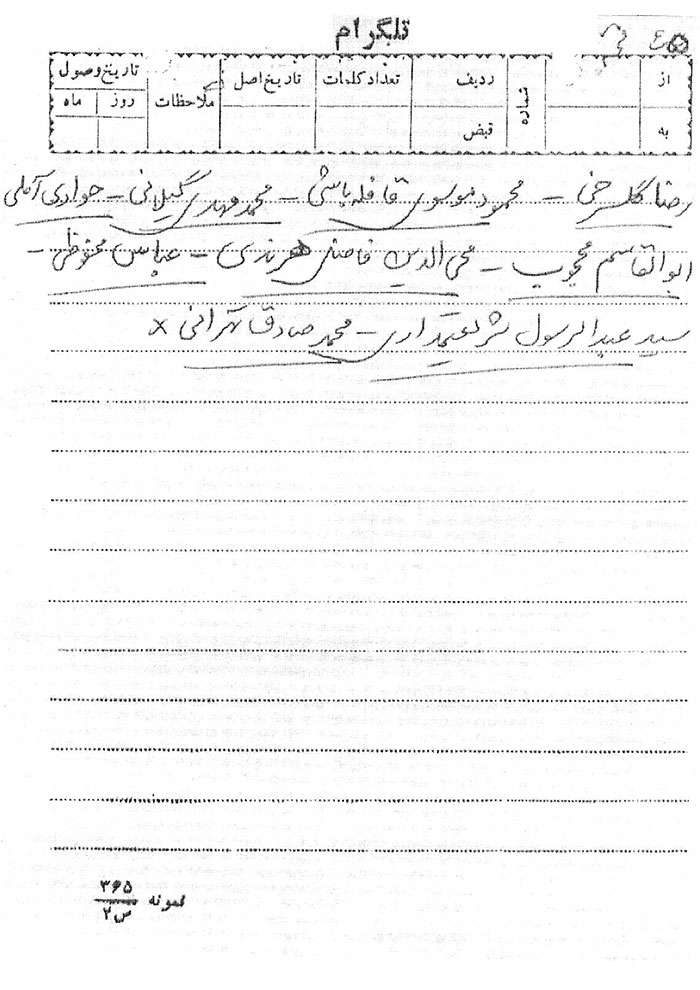 تلگرام
از
ردیف
تعداد کلمات
تاریخ اصل
ملاحظات
تاریخ وصول
شماره
روز
ماه
به
قبض
رضا گلسرخی - محمود موسوی قافله باشی - محمد مهدی گیلانی - جوادی آملی
ابوالقاسم محجوب - محی الدین فاضل هرندی - عباس محفوظی -
سید عبدالرسول شریعتمداری - محمد صادق تهرانی ×
نمونه ۳۶۵
ص ۲